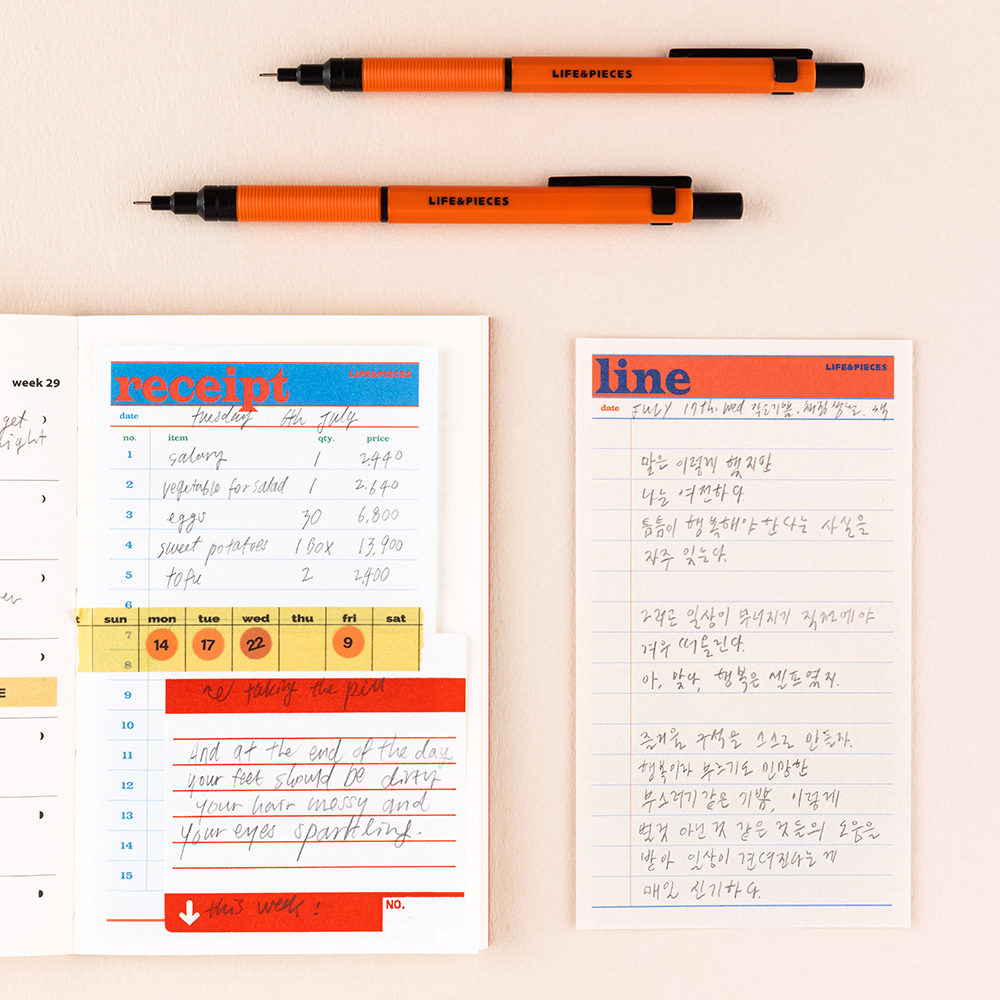 LIFE&PIECES
LIFE&PIECES
week 29
get
night
receipt
LIFE&PIECES
date tuesday 6th July
no. item qty. price
1 salary 1 2,440
2 vegetable for salad 1 2.640
3 eggs 30 6,800
4 sweet potatoes 1 BOX 13,900
5 tofu 2 2,400
6
7
8
9
10
11
12
13
14
15
t sun mon tue wed thu fri sat
14 17 22 9
taking the pill
And at the end of the day
your feet should be dirty
your hair messy and
your eyes sparkling.
this week!
NO.
E
line
LIFE&PIECES
date JULY 17th. wed
말은 이렇게 했지만
나는 여전하다.
틈틈이 행복해야 한다는 사실을
자주 잊는다.
그러곤 일상이 무너지기 직전에야
겨우 떠올린다.
아, 맞다, 행복은 셀프였지.
즐거울 구석을 스스로 만들자.
행복이라 부르기도 민망한
부스러기 같은 기쁨, 이렇게
별것 아닌 것 같은 것들의 도움을
받아 일상이 견뎌진다는 게
매일 신기하다.